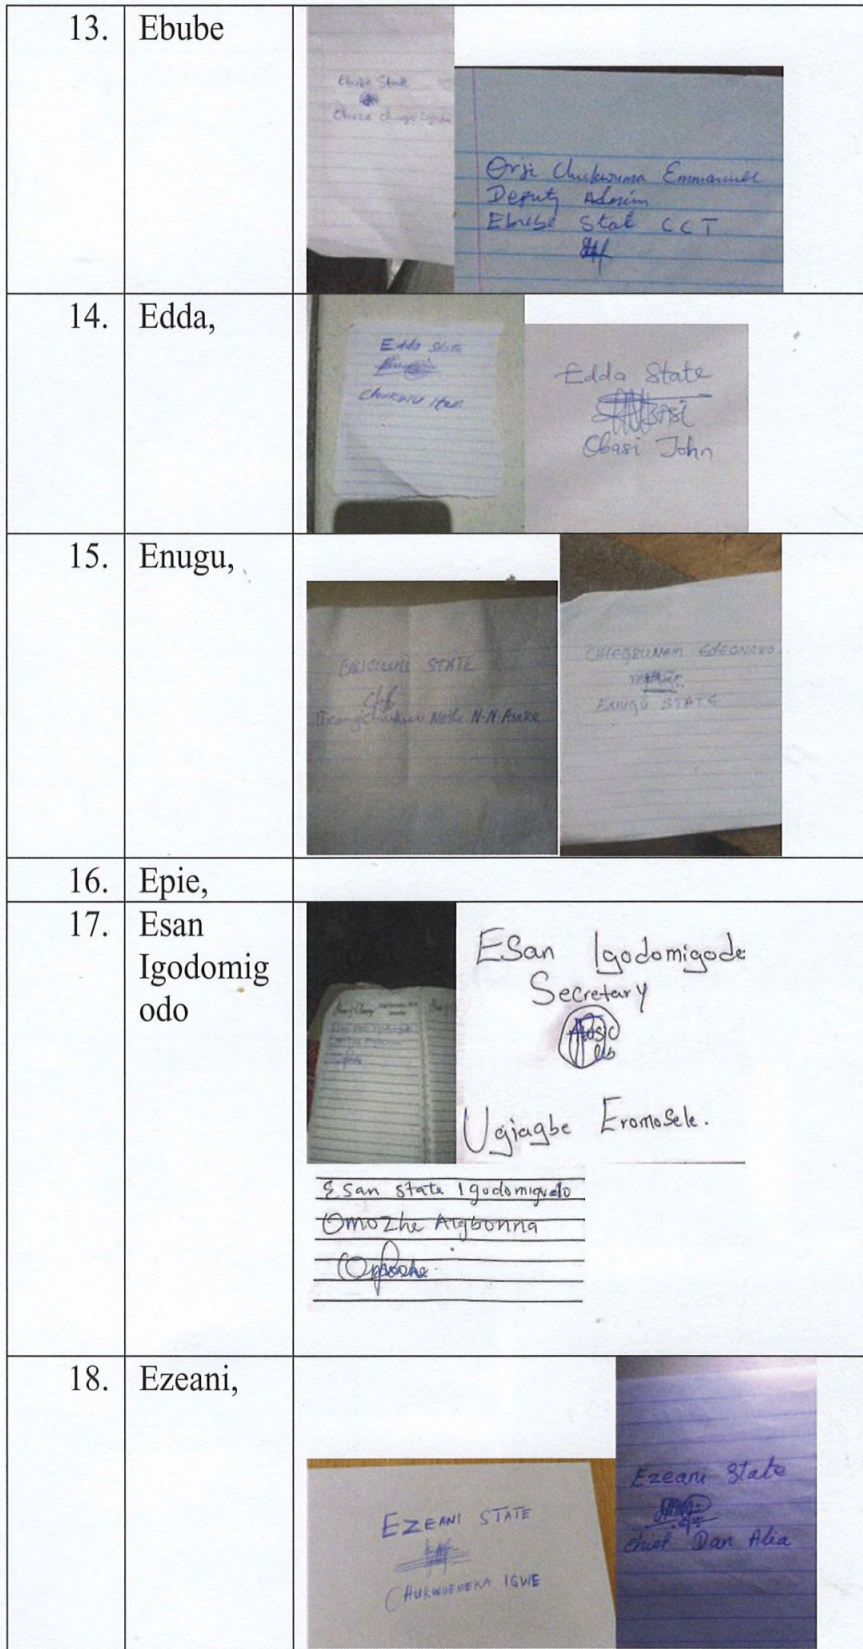 13. Ebube
Ebube State
Orji Chukwuma Emmanuel
Deputy Admin
Ebube Stat CCT
14. Edda,
Edda State
Chukwu Itex
Edda State
Obasi John
15. Enugu,
STATE
Neste N.N. Aneke
ENUGU STATE
16. Epie,
17. Esan
Igodomig
odo
ESan Igodomigodo
Secretary
Music
Ugiagbe Eromosele.
Esan State Igodomigodo
Omozhe Aigbonna
18. Ezeani,
EZEANI STATE
CHUKWUEMEKA IGWE
Ezeani State
Chief Dan Alia